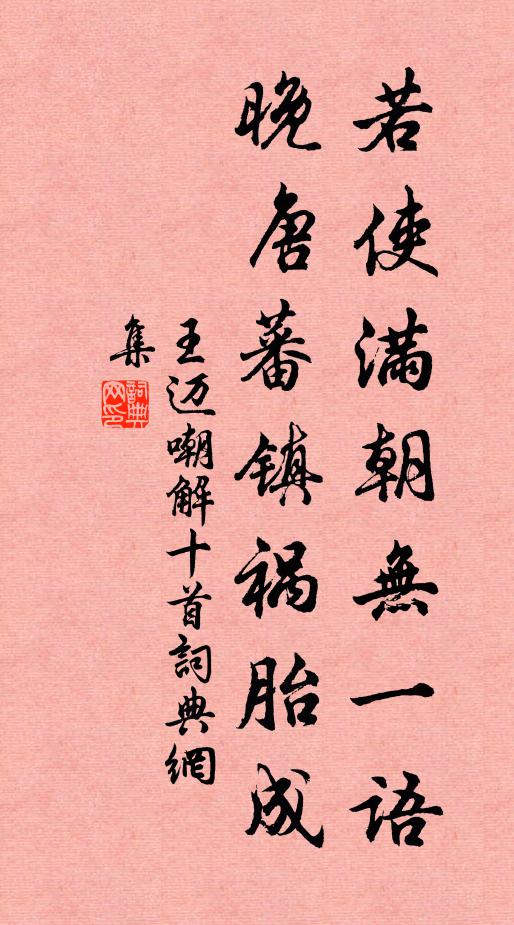 若使满朝無一语
晚唐蕃镇祸胎成
王迈嘲解十首詞典網
集
詞典
网印